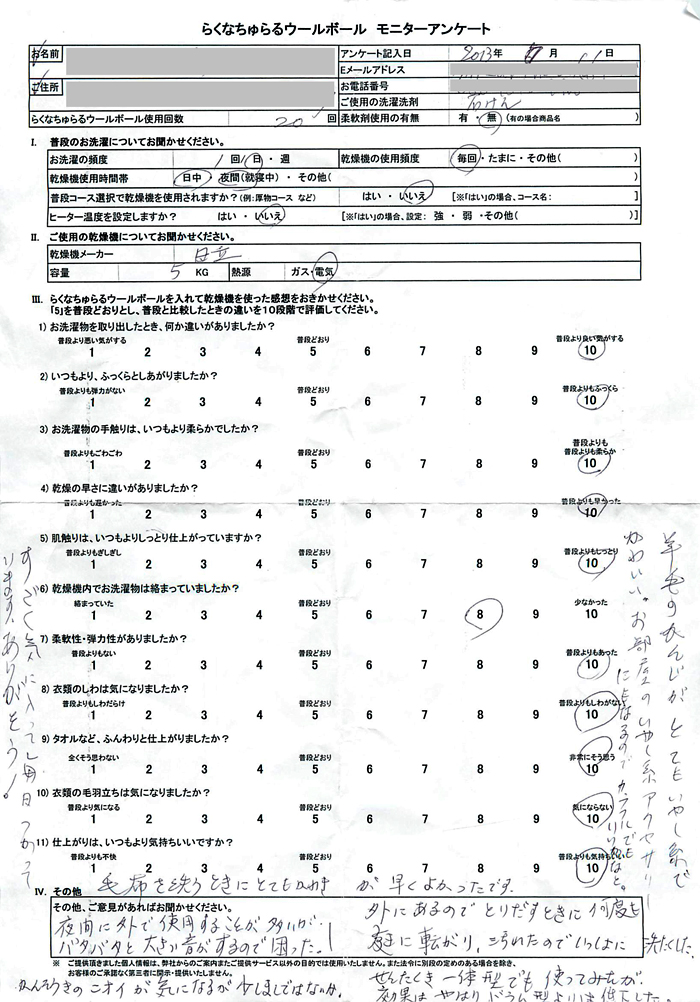 らくなちゅらるウールボール モニターアンケート
お名前
アンケート記入日 2013年 月 日
Eメールアドレス
ご住所
お電話番号
ご使用の洗濯洗剤 石けん
らくなちゅらるウールボール使用回数 20 回 柔軟剤使用の有無 有 ・ 無 (有の場合商品名 )
I. 普段のお洗濯についてお聞かせください。
お洗濯の頻度 1 回/日 ・ 週 乾燥機の使用頻度 毎回・たまに・その他( )
乾燥機使用時間帯 日中 ・ 夜間(就寝中) ・ その他( )
普段コース選択で乾燥機を使用されますか?(例:厚物コース など) はい ・ いいえ [※「はい」の場合、コース名: ]
ヒーター温度を設定しますか? はい ・ いいえ [※「はい」の場合、設定: 強 ・ 弱 ・その他( )]
II. ご使用の乾燥機についてお聞かせください。
乾燥機メーカー 日立
容量 5 KG 熱源 ガス・電気
III. らくなちゅらるウールボールを入れて乾燥機を使った感想をおきかせください。
「5」を普段どおりとし、普段と比較したときの違いを10段階で評価してください。
1) お洗濯物を取り出したとき、何か違いがありましたか?
普段より悪い気がする 普段どおり 普段より良い気がする
1 2 3 4 5 6 7 8 9 10
2) いつもより、ふっくらとしあがりましたか?
普段よりも弾力がない 普段どおり 普段よりもふっくら
1 2 3 4 5 6 7 8 9 10
3) お洗濯物の手触りは、いつもより柔らかでしたか?
普段よりもごわごわ 普段どおり 普段よりも
普段よりも柔らか
1 2 3 4 5 6 7 8 9 10
4) 乾燥の早さに違いがありましたか?
普段よりも遅かった 普段どおり 普段よりも早かった
1 2 3 4 5 6 7 8 9 10
5) 肌触りは、いつもよりしっとり仕上がっていますか?
普段よりもぎしぎし 普段どおり 普段よりもしっとり
1 2 3 4 5 6 7 8 9 10
6) 乾燥機内でお洗濯物は絡まっていましたか?
絡まっていた 普段どおり 少なかった
1 2 3 4 5 6 7 8 9 10
7) 柔軟性・弾力性がありましたか?
普段よりもない 普段どおり 普段よりもあった
1 2 3 4 5 6 7 8 9 10
8) 衣類のしわは気になりましたか?
普段よりもしわだらけ 普段どおり 普段よりもしわがない
1 2 3 4 5 6 7 8 9 10
9) タオルなど、ふんわりと仕上がりましたか?
全くそう思わない 普段どおり 非常にそう思う
1 2 3 4 5 6 7 8 9 10
10) 衣類の毛羽立ちは気になりましたか?
普段より気になる 普段どおり 気にならない
1 2 3 4 5 6 7 8 9 10
11) 仕上がりは、いつもより気持ちいいですか?
普段よりも不快 普段どおり 普段よりも気持ちいい
1 2 3 4 5 6 7 8 9 10
羊毛のかんじがとてもいやし系で
かわいい。お部屋のいやし系アクセサリー
にもなるので カラフルでも
すごく気に入って毎日つかって
います。ありがとう!
IV. その他 毛布を洗うときにとてもかわき が早くよかったです。
その他、ご意見があればお聞かせください。
夜間に外で使用することが多いが、
バタバタと大きい音がするので困った。
外にあるので とりだすときに何度も
庭に転がり、汚れたのでいっしょに 洗たくした。
※ ご提供頂きました個人情報は、弊社からのご案内またご提供サービス以外の目的では使用いたしません。また法令に別段の定めのある場合を除き、
お客様のご承諾なく第三者に開示・提供いたしません。
かんそうきのニオイが気になるが少しましではないか。
せんたくき一体型でも使ってみたが、
効果はやはりドラム型よりは